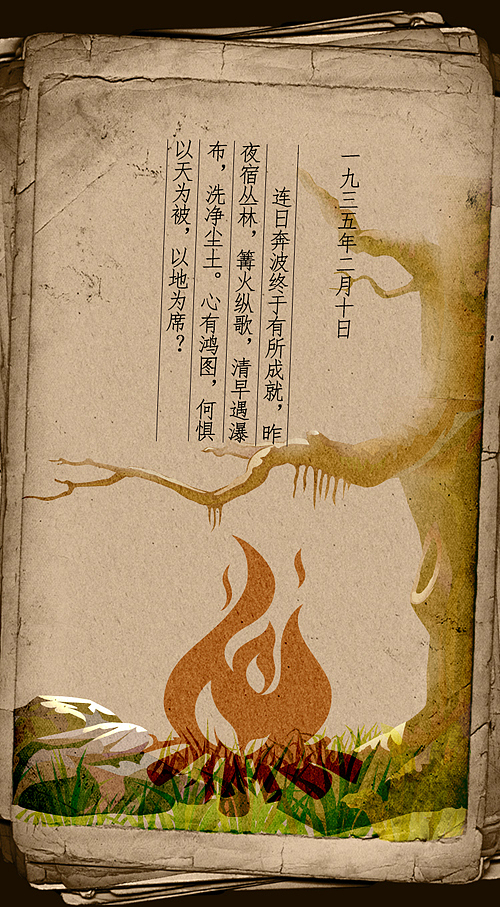 一九三五年二月十日
连日奔波终于有所成就，昨
夜宿丛林，篝火纵歌，清早遇瀑
布，洗净尘土。心有鸿图，何惧
以天为被，以地为席？